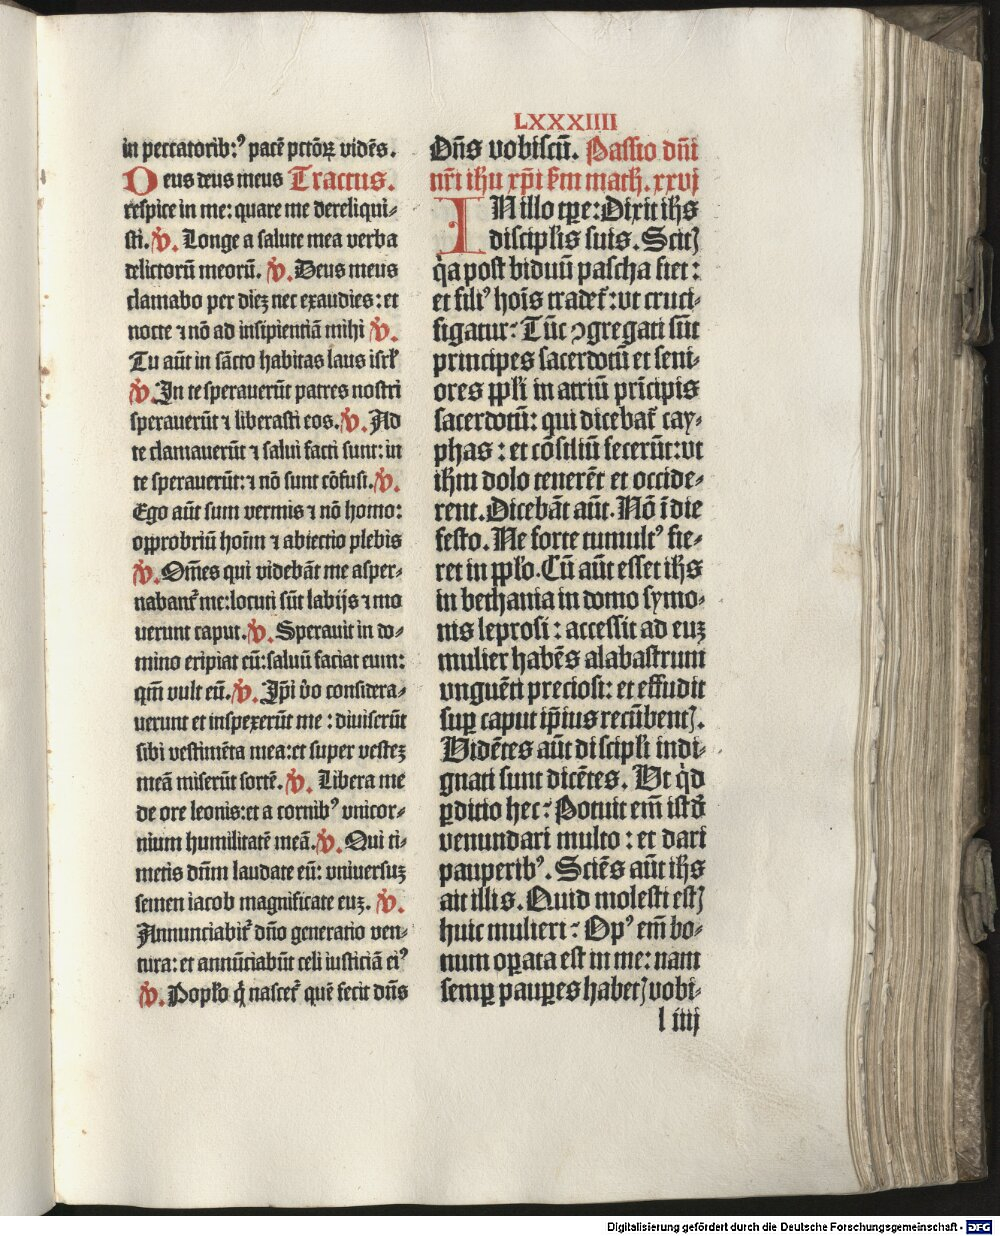 LXXXIIII
in peccatorib:⁹ pacē pctōꝝ vidēs.
Deus deus meus Tractus.
respice in me: quare me dereliqui⸗
sti. ℣. Longe a salute mea verba
delictorū meorū. ℣. Deus meus
clamabo per dieʒ nec exaudies: et
nocte ⁊ nō ad insipientiā mihi ℣.
Tu aūt in sācto habitas laus isrł
℣. In te sperauerūt patres nostri
sperauerūt ⁊ liberasti eos. ℣. Ad
te clamauerūt ⁊ salui facti sunt: in
te sperauerūt: ⁊ nō sunt cōfusi. ℣.
Ego aūt sum vermis ⁊ nō homo:
opprobriū hoīm ⁊ abiectio plebis
℣. Om̄es qui videbāt me asper⸗
nabanť me: locuti sūt labijs ⁊ mo
uerunt caput. ℣. Sperauit in do⸗
mino eripiat eū: saluū faciat eum:
qm̄ vult eū. ℣. Ip̄i v̄o considera⸗
uerunt et inspexerūt me: diuiserūt
sibi vestimēta mea: et super vesteʒ
meā miserūt sortē. ℣. Libera me
de ore leonis: et a cornib⁹ vnicor⸗
nium humilitatē meā. ℣. Qui ti⸗
metis dn̄m laudate eū: vniuersuʒ
semen iacob magnificate euʒ. ℣.
Annunciabiť dn̄o generatio ven⸗
tura: et annūciabūt celi iusticiā ei⁹
℣. Popło q̄ nasceť quē fecit dn̄s
Dn̄s vobiscū. Passio dn̄i
nr̄i ihu xp̄i ẜm math. xxvj
IN illo tꝑe: Dixit ihs
discipłis suis. Scitꝭ
q̇a post biduū pascha fiet:
et fili⁹ hoīs tradeť: vt cruci⸗
figatur: Tūc ꝯgregati sūt
principes sacerdotū et seni⸗
ores ppłi in atriū prīcipis
sacerdotū: qui dicebať cay⸗
phas: et cōsiliū fecerūt: vt
ihm dolo tenerēt et occide⸗
rent. Dicebāt aūt. Nō ī die
festo. Ne forte tumult⁹ fie⸗
ret in ppło. Cū aūt esset ihs
in bethania in domo symo⸗
nis leprosi: accessit ad euʒ
mulier habēs alabastrum
vnguēti preciosi: et effudit
suꝑ caput ip̄ius recūbentꝭ.
Uidētes aūt discipłi indi⸗
gnati sunt dicētes. Ut q̇d
ꝑditio hec: Potuit em̄ istḋ
venundari multo: et dari
pauperib⁹. Sciēs aūt ihs
ait illis. Quid molesti estꝭ
huic mulieri: Op⁹ em̄ bo⸗
num oꝑata est in me: nam
semꝑ pauꝑes habetꝭ vobi⸗
l iiij
Digitalisierung gefördert durch die Deutsche Forschungsgemeinschaft - DFG